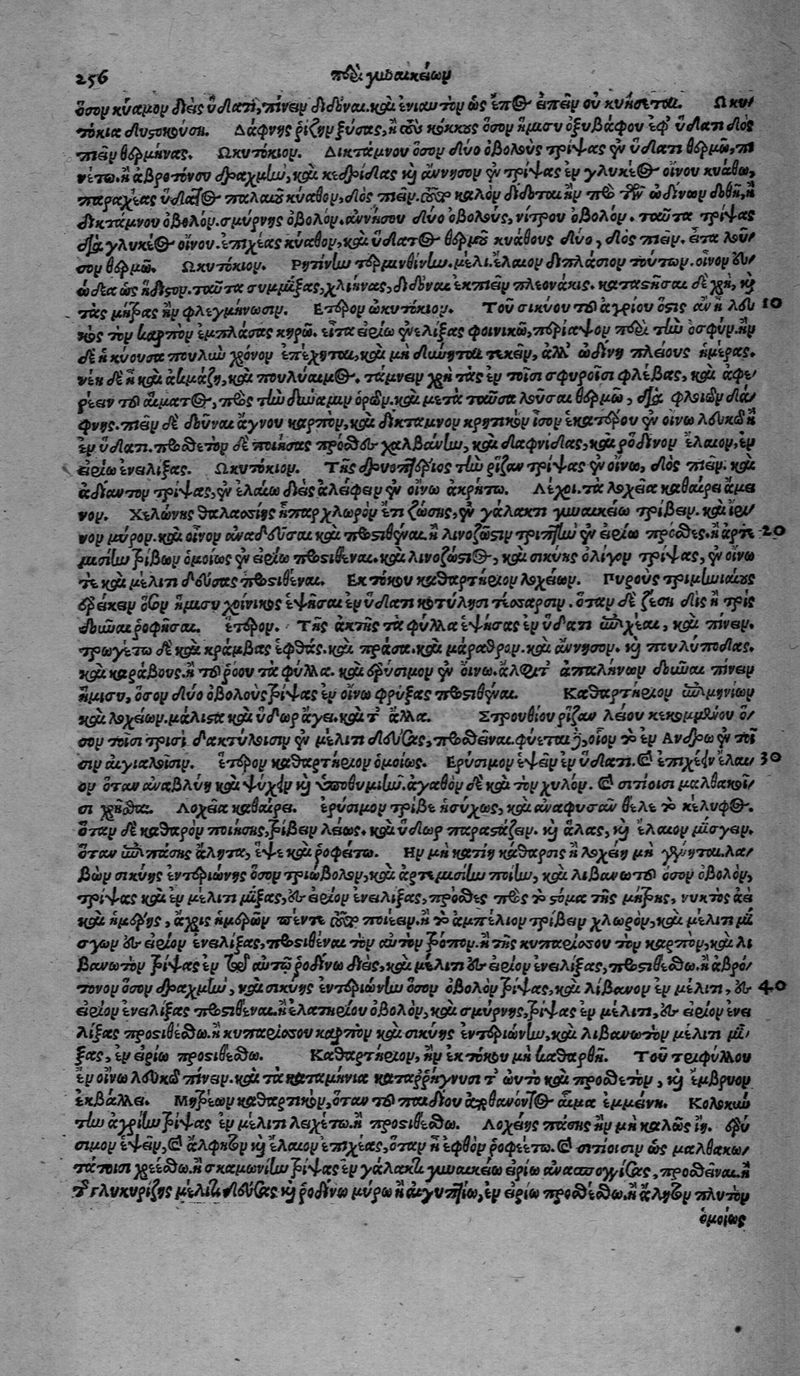 256 περὶ γυναικείων
ὅσον κύαμον διεὶς ὕδατι, πίνειν διδόναι. καὶ ἐνιαυτὸν ὡς ἔπος εἰπεῖν οὐ κυήσεται. Ὠκυ
τόκια δυστοκούσῃ. Δάφνης ῥίζην ξύσας, ἢ τοὺς κόκκους ὅσον ἥμισυ ὀξυβάφου ἐφ' ὕδατι δὸς
πιεῖν θερμήνας. Ὠκυτόκιον. Δικτάμνου ὅσον δύο ὀβολοὺς τρίψας ἐν ὕδατι θερμῷ, πι
νέτω. ἢ ἀβροτόνου δραχμὴν, καὶ κεδρίδας καὶ ἄννησον ἐν τρίψας ἐν γλυκέος οἴνου κυάθῳ,
παραχέας ὕδατος παλαιοῦ κύαθον, δὸς πιεῖν. τοῦτο καλὸν δίδοται ἢν πρὸ τῶν ὠδίνων δοθῇ, ἢ
δικτάμνου ὀβολὸν, σμύρνης ὀβολὸν, ἀννήσου δύο ὀβολοὺς, νίτρου ὀβολὸν. ταῦτα τρίψας
διὰ γλυκέος οἴνου. ἐπιχέας κύαθον, καὶ ὕδατος θερμοῦ κυάθους δύο, δὸς πιεῖν. εἶτα λοῦ
σον θερμῷ. Ὠκυτόκιον. Ῥητίνην τερμινθίνην, μέλι, ἔλαιον διπλάσιον τούτων. οἶνον εὐ
ώδεα ὡς ἥδιστον. ταῦτα συμμίξας, χλιήνας, διδόναι ἐκπιεῖν πλεονάκις. καταστῆσαι δὲ χρὴ, καὶ
τὰς μήτρας ἢν φλεγμήνωσιν. Ἕτερον ὠκυτόκιον. Τοῦ σικύου τοῦ ἀγρίου ὅστις ἂν ᾖ λευ 10
κὸς τὸν καρπὸν ἐμπλάσας κηρῷ. εἶτα εἰρίῳ ἐνελίξας φοινικῷ, περίαψον περὶ τὴν ὀσφύν. ἢν
δὲ ἡ κύουσα πουλὺν χρόνον ἐπέχηται, καὶ μὴ δύνηται τεκεῖν, ἀλλ' ὠδίνῃ πλείους ἡμέρας.
νέη δὲ ᾖ καὶ ἀκμάζῃ, καὶ πουλύαιμος. τάμνειν χρὴ τὰς ἐν τοῖσι σφυροῖσι φλέβας, καὶ ἀφαι
ρέειν τοῦ αἵματος, πρὸς τὴν δύναμιν ὁρῶν. καὶ μετὰ ταῦτα λοῦσαι θερμῷ, διὰ φλοιῶν δά
φνης. πιεῖν δὲ δοῦναι ἄγνου καρπὸν, καὶ δίκταμνον κρητικὸν ἴσον ἑκατέρου ἐν οἴνῳ λευκῷ ἢ
ἐν ὕδατι. προσθετὸν δὲ ποιήσας πρόσθες χαλβάνην, καὶ δαφνίδας, καὶ ῥόδινον ἔλαιον, ἐν
εἰρίῳ ἐνελίξας. Ὠκυτόκιον. Τῆς δρυοπτέριος τὴν ῥίζαν τρίψας ἐν οἴνῳ, δὸς πιεῖν. καὶ
ἀδίαντον τρίψας, ἐν ἐλαίῳ διεὶς ἀλείφειν ἐν οἴνῳ ἀκρήτῳ. Λέχρι. τὰ λοχεῖα καθαίρει ἄμει
νον. Χελώνης θαλασσίης ἧπαρ χλωρὸν ἔτι ζώσης, ἐν γάλακτι γυναικείῳ τρίβειν. καὶ ἴρι
νον μύρον. καὶ οἶνον ἀναδεῦσαι καὶ προστιθέναι. ἢ λινόζωστιν τριπτὴν ἐν εἰρίῳ πρόσθες. ἢ ἀρτε 20
μισίην τρίβων ὁμοίως ἐν εἰρίῳ προστιθέναι. καὶ λινοζώστιος, καὶ σικύης ὀλίγον τρίψας, ἐν οἴνῳ
τε καὶ μέλιτι δεύσας προστιθέναι. Ἐκ τόκου καθαρτήριον λοχείων. Πυροὺς τριμηνιαίους
ἐρείκειν ὅσον ἥμισυ χοίνικος ἑψῆσαι ἐν ὕδατι κοτύλῃσι τέσσαρσιν. ὅταν δὲ ζέσῃ δὶς ἢ τρὶς
δοῦναι ῥοφῆσαι. ἕτερον. Τῆς ἀκτῆς τὰ φύλλα ἑψήσας ἐν ὕδατι ἀποχέαι, καὶ πίνειν.
τρωγέτω δὲ καὶ κράμβας ἑφθὰς. καὶ πράσα. καὶ μάραθρον. καὶ ἄννησον. καὶ πουλύποδας.
καὶ καράβους. ἢ τοῦ ῥόου τὰ φύλλα. καὶ ἐρύσιμον ἐν οἴνῳ. ἄλφιτα ἁπαλήνων δοῦναι πίνειν
ἥμισυ, ὅσον δύο ὀβολοὺς τρίψας ἐν οἴνῳ φρύξας προστιθέναι. Καθαρτήριον ἐπιμηνίων
καὶ λοχείων. μάλιστα καὶ ὕδωρ ἄγει. καὶ τ' ἄλλα. Στρουθίου ῥίζαν λείου κεκομμένου ὅ
σον τοῖσι τρισὶ δακτύλοισιν ἐν μέλιτι δεύσας, προσθεῖναι. φύεται δὲ, οἷον τὸ ἐν Ἄνδρῳ ἐν τοῖ
σιν αἰγιαλοῖσιν. ἕτερον καθαρτήριον ὁμοίως. Ἐρύσιμον ἑψεῖν ἐν ὕδατι. καὶ ἐπιχέειν ἔλαι 30
ον ὅταν ἀναβλύῃ καὶ ψύχειν καὶ ὑποθυμιῆν. ἀγαθὸν δὲ καὶ τὸν χυλόν. καὶ σιτίοισι μαλθακοῖ
σι χρῆσθαι. Λοχεῖα καθαίρει. ἐρύσιμον τρίβε ἡσύχως, καὶ ἀναφυσᾶν θέλε τὸ κέλυφος.
ὅταν δὲ καθαρὸν ποιήσῃς, τρίβειν λείως. καὶ ὕδωρ παραστάζειν. καὶ ἅλας, καὶ ἔλαιον μίσγειν.
ὅταν ἐπιπάσῃς ἄλητα, ἕψε καὶ ῥοφείτω. Ἢν μὴ κατίῃ κάθαρσις ἢ λοχείη μὴ γένηται. λα
βὼν σικύης ἐντεριώνης ὅσον τριώβολον, καὶ ἀρτεμισίην ποίην, καὶ λιβανωτοῦ ὅσον ὀβολὸν,
τρίψας καὶ ἐν μέλιτι μίξας, ἐς εἰρίον ἐνελίξας, πρόσθες πρὸς τὸ στόμα τῆς μήτρης, νυκτὸς ἀεὶ
καὶ ἡμέρης, ἄχρις ἡμερῶν πέντε τοῦτο ποιέειν. ἢ τὸ ἀμπέλιον τρίβειν χλωρὸν, καὶ μέλιτι μί
σγων ἐς εἰρίον ἐνελίξας, προστιθέναι τὸν αὐτὸν τρόπον. ἢ τῆς κυπαρίσσου τὸν καρπὸν, καὶ λι
βανωτὸν τρίψας ἐν τῷ αὐτῷ ῥοδίνῳ διεὶς, καὶ μέλιτι ἐς εἰρίον ἐνελίξας, προστιθέσθω. ἢ ἀβρό
τονον ὅσον δραχμὴν, καὶ σικύης ἐντεριώνην ὅσον ὀβολὸν τρίψας, καὶ λίβανον ἐν μέλιτι, ἐς 40
εἰρίον ἐνελίξας προστιθέναι. ἢ ἐλατηρίου ὀβολὸν, καὶ σμύρνης, τρίψας ἐν μέλιτι, ἐς εἰρίον ἐνε
λίξας προστιθέσθω. ἢ κυπαρίσσου καρπὸν καὶ σικύης ἐντεριώνην, καὶ λιβανωτὸν μέλιτι μί
ξας, ἐν εἰρίῳ προστιθέσθω. Καθαρτήριον, ἢν ἐκ τόκου μὴ καθαρθῇ. Τοῦ τριφύλλου
ἐν οἴνῳ λευκῷ πίνειν. καὶ τὰ καταμήνια καταρρήγνυσι τ' ὠυτὸ καὶ προσθετὸν, καὶ ἔμβρυον
ἐκβάλλει. Μητρέων καθαρτικὸν, ὅταν τοῦ παιδίου ἀποθανόντος αἷμα ἐμμένῃ. Κολοκύν
την ἀγρίην τρίψας ἐν μέλιτι λειχέτω. ἢ προστιθέσθω. Λοχείης πάσης ἢν μὴ καλῶς ἴῃ. ἐρύ
σιμον ἑψεῖν, καὶ ἄλφιτον καὶ ἔλαιον ἐπιχέας, ὅταν ᾖ ἑφθὸν ῥοφείτω. καὶ σιτίοισιν ὡς μαλθακω
τάτοισι χρεέσθω. ἢ σκαμωνίην τρίψας ἐν γάλακτι γυναικείῳ εἰρίῳ ἀνασπογγίσας, προσθεῖναι. ἢ
τῆς γλυκυρίζης μέλιτι δεύσας καὶ ῥοδίνῳ μύρῳ ἢ αἰγυπτίῳ, ἐν εἰρίῳ προσθέσθω. ἢ ἄλητον πλυτὸν
ὁμοίως